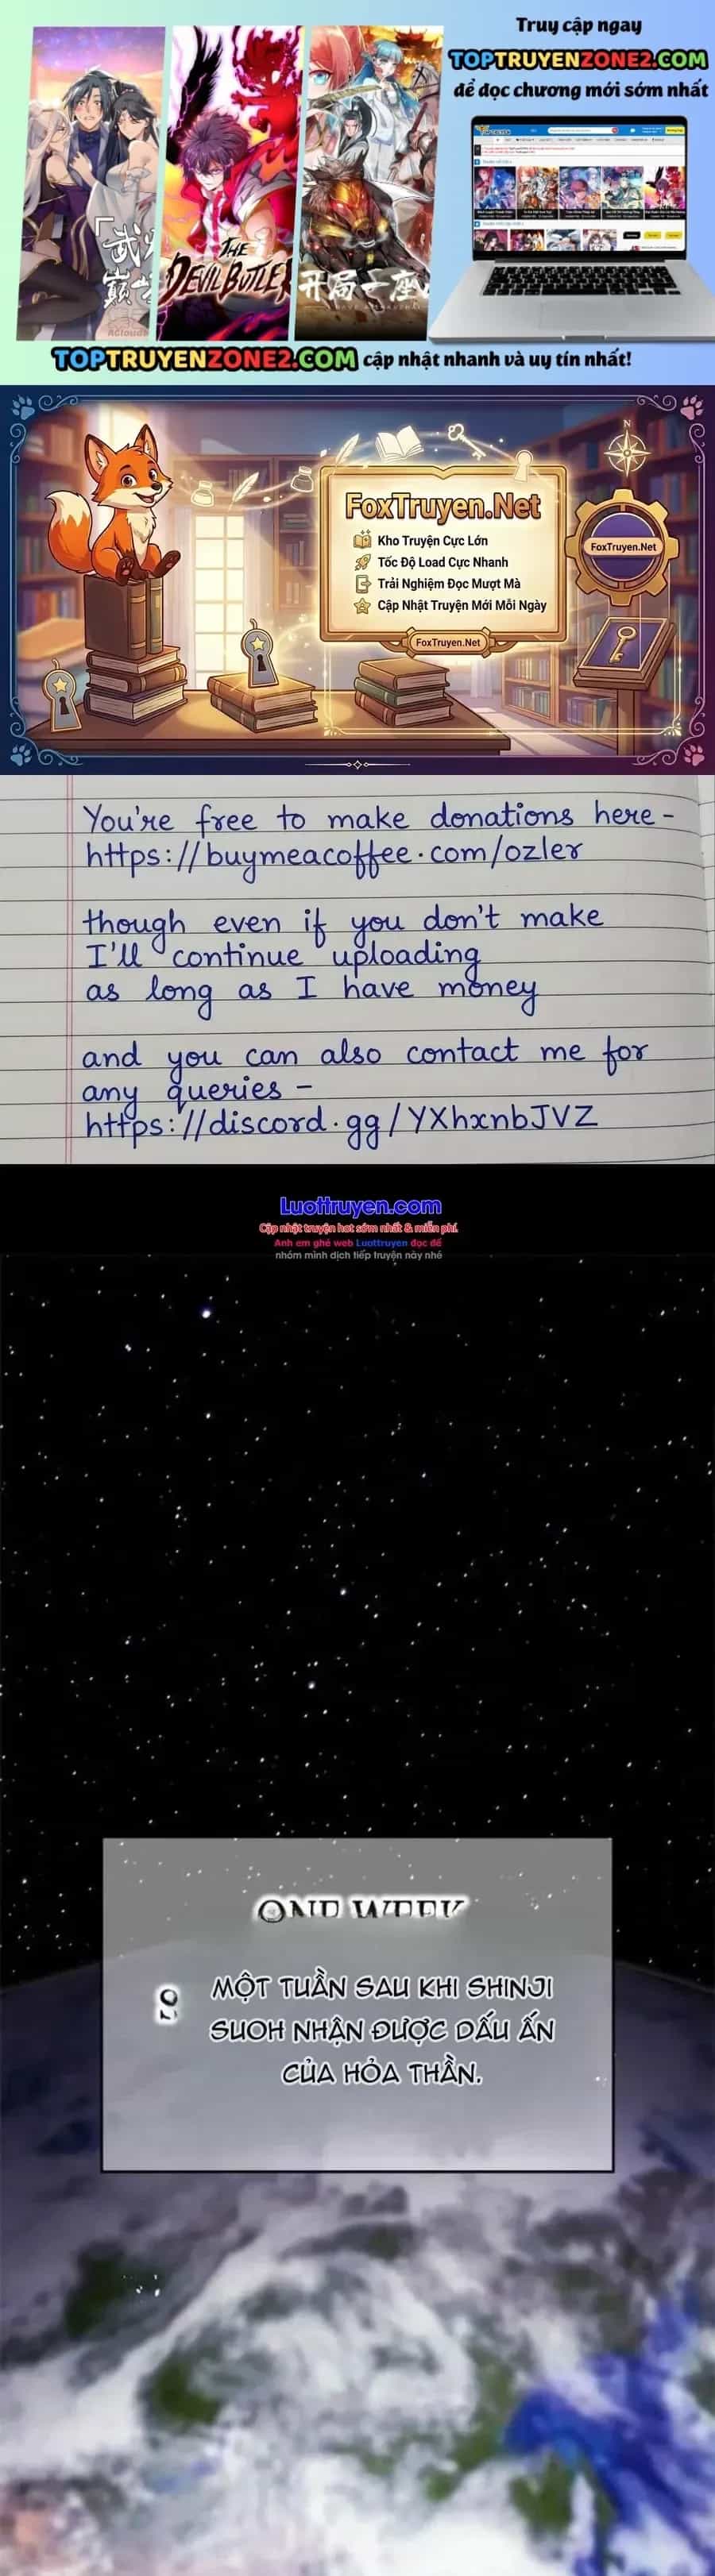 Truy cập ngay
TOPTRUYENZONE2.COM
để đọc chương mới sớm nhất
THE
DEVIL BUTLER
开局一座
TOPTRUYENZONE2.COM cập nhật nhanh và uy tín nhất!
N
FoxTruyen.Net
Kho Truyện Cực Lớn
Tốc Độ Load Cực Nhanh
Trải Nghiệm Đọc Mượt Mà
Cập Nhật Truyện Mới Mỗi Ngày
FoxTruyen.Net
FoxTruyen.Net
You're free to make donations here -
https://buymeacoffee.com/ozler
though even if you don't make
I'll continue uploading
as long as I have money
and you can also contact me for
any queries -
https://discord.gg/YXhxnbJVZ
Luottruyen.com
Cập nhật truyện hot sớm nhất & miễn phí.
Anh em ghé web Luottruyen đọc để
nhóm mình dịch tiếp truyện này nhé
ONE WEEK
MỘT TUẦN SAU KHI SHINJI
SUOH NHẬN ĐƯỢC DẤU ẤN
CỦA HỎA THẦN.